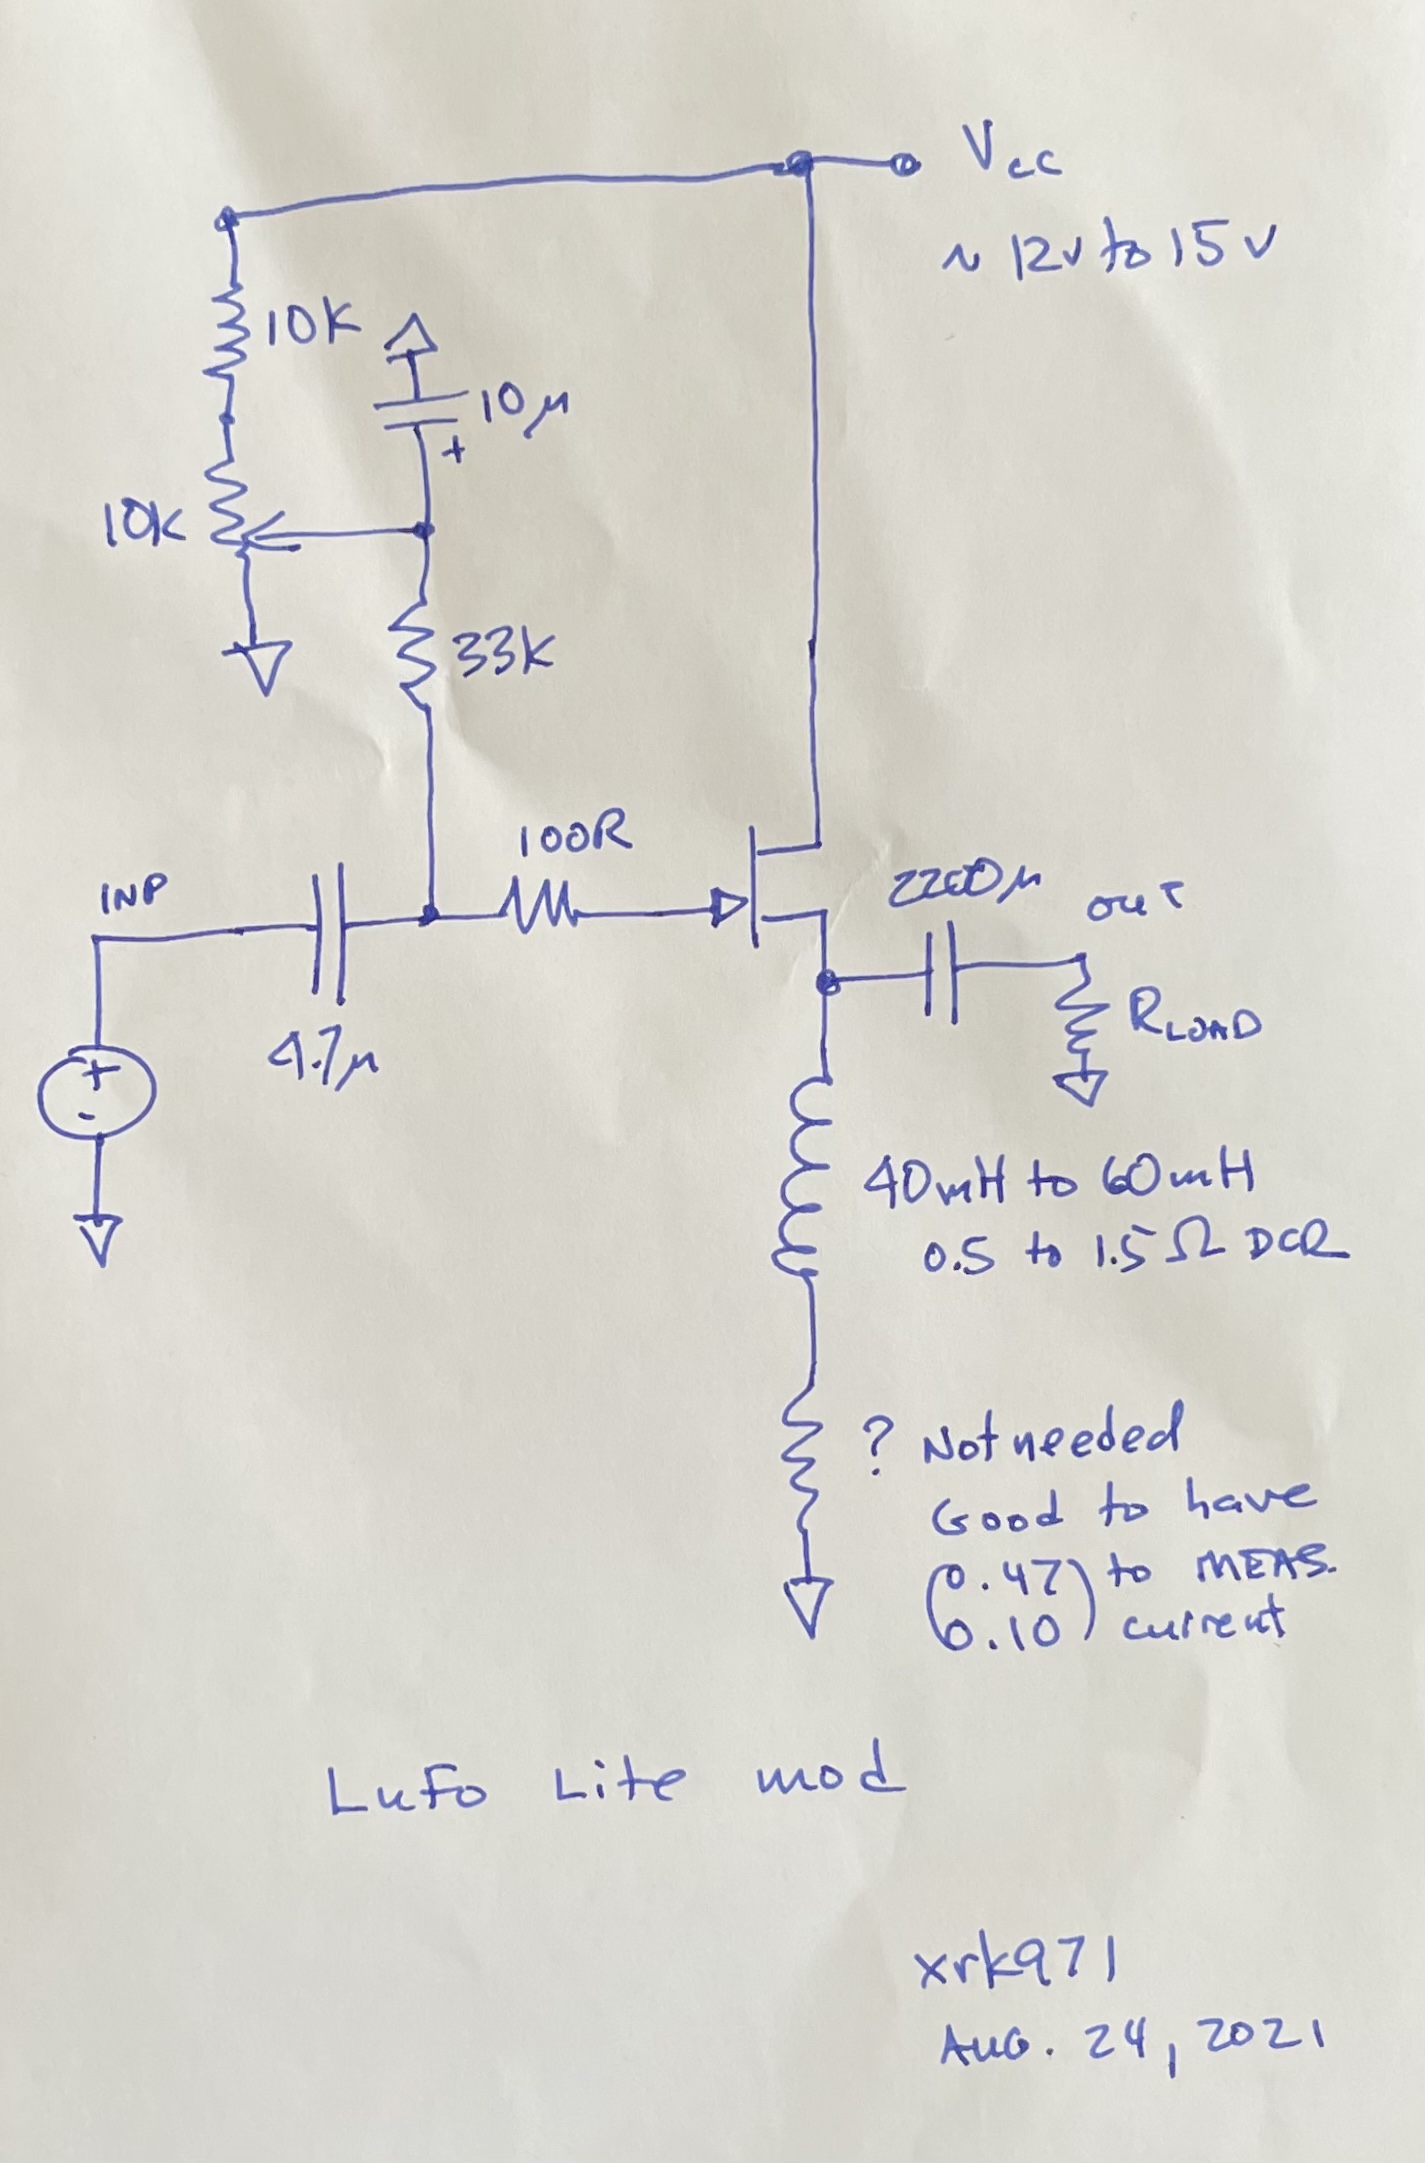 Vcc
~ 12v to 15v
10K
10μ
+
10K
33K
100R
INP
2200μ
OUT
4.7μ
RLOAD
+
-
40mH to 60mH
0.5 to 1.5Ω DCR
? Not needed
Good to have
(0.47) to MEAS.
0.10) current
LuFo Lite mod
xrk971
Aug. 24, 2021